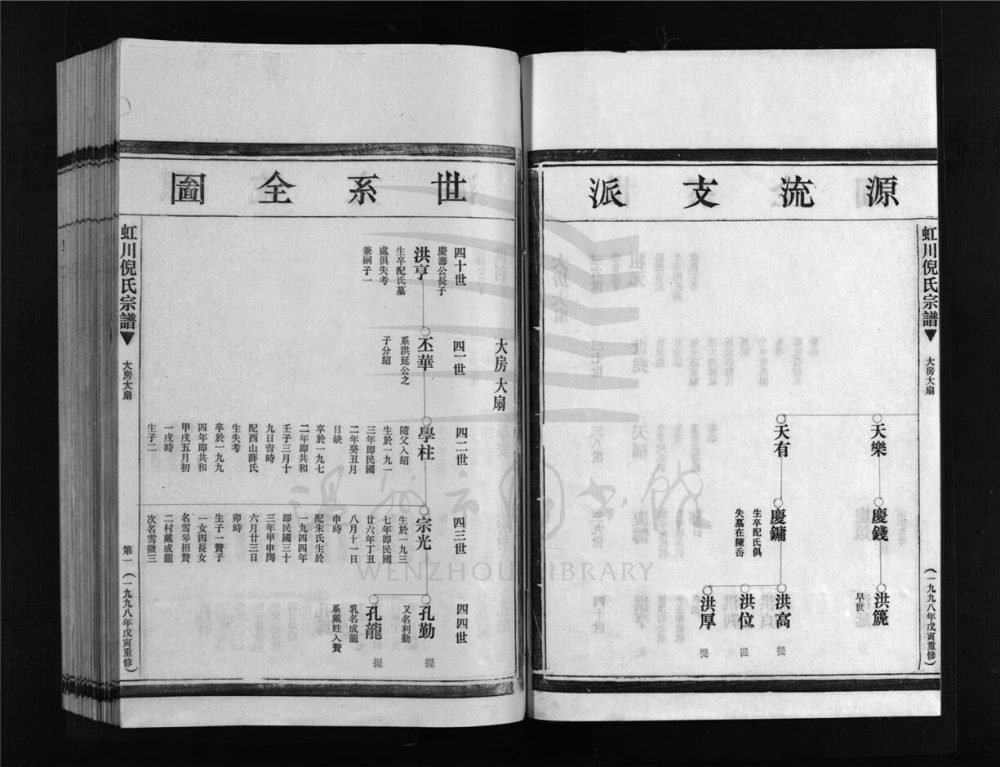 源流支派
虹川倪氏宗譜
大房大扇
(一九九八年戊寅重修)
天樂
慶錢
洪篪
早世
天有
慶鏞
生卒配氏俱
失墓在陳岙
洪高
提
洪位
提
洪厚
提
世系全圖
大房 大扇
四十世
慶壽公長子
洪亨
生卒配氏墓
處俱失考
兼嗣子一
四一世
丕華
系洪延公之
子分紹
四二世
學柱
隨父入紹
生於一九一
三年即民國
二年癸丑月
日缺
卒於一九七
二年即共和
壬子三月十
九日吉時
配西山薛氏
生失考
卒於一九九
四年即共和
甲戌五月初
一戌時
生子二
四三世
宗光
生於一九三
七年即民國
廿六年丁丑
八月十一日
申時
配朱氏生於
一九四四年
即民國三十
三年甲申閏
六月廿三日
卯時
生子一贅子
一女四長女
名雪琴招贅
二村戴成龍
次名雪微三
四四世
孔勤
又名利勤
提
孔龍
乳名成龍
系戴姓入贅
提
虹川倪氏宗譜
大房大扇
第一
(一九九八年戊寅重修)
溫州市图书馆
WENZHOU LIBRARY